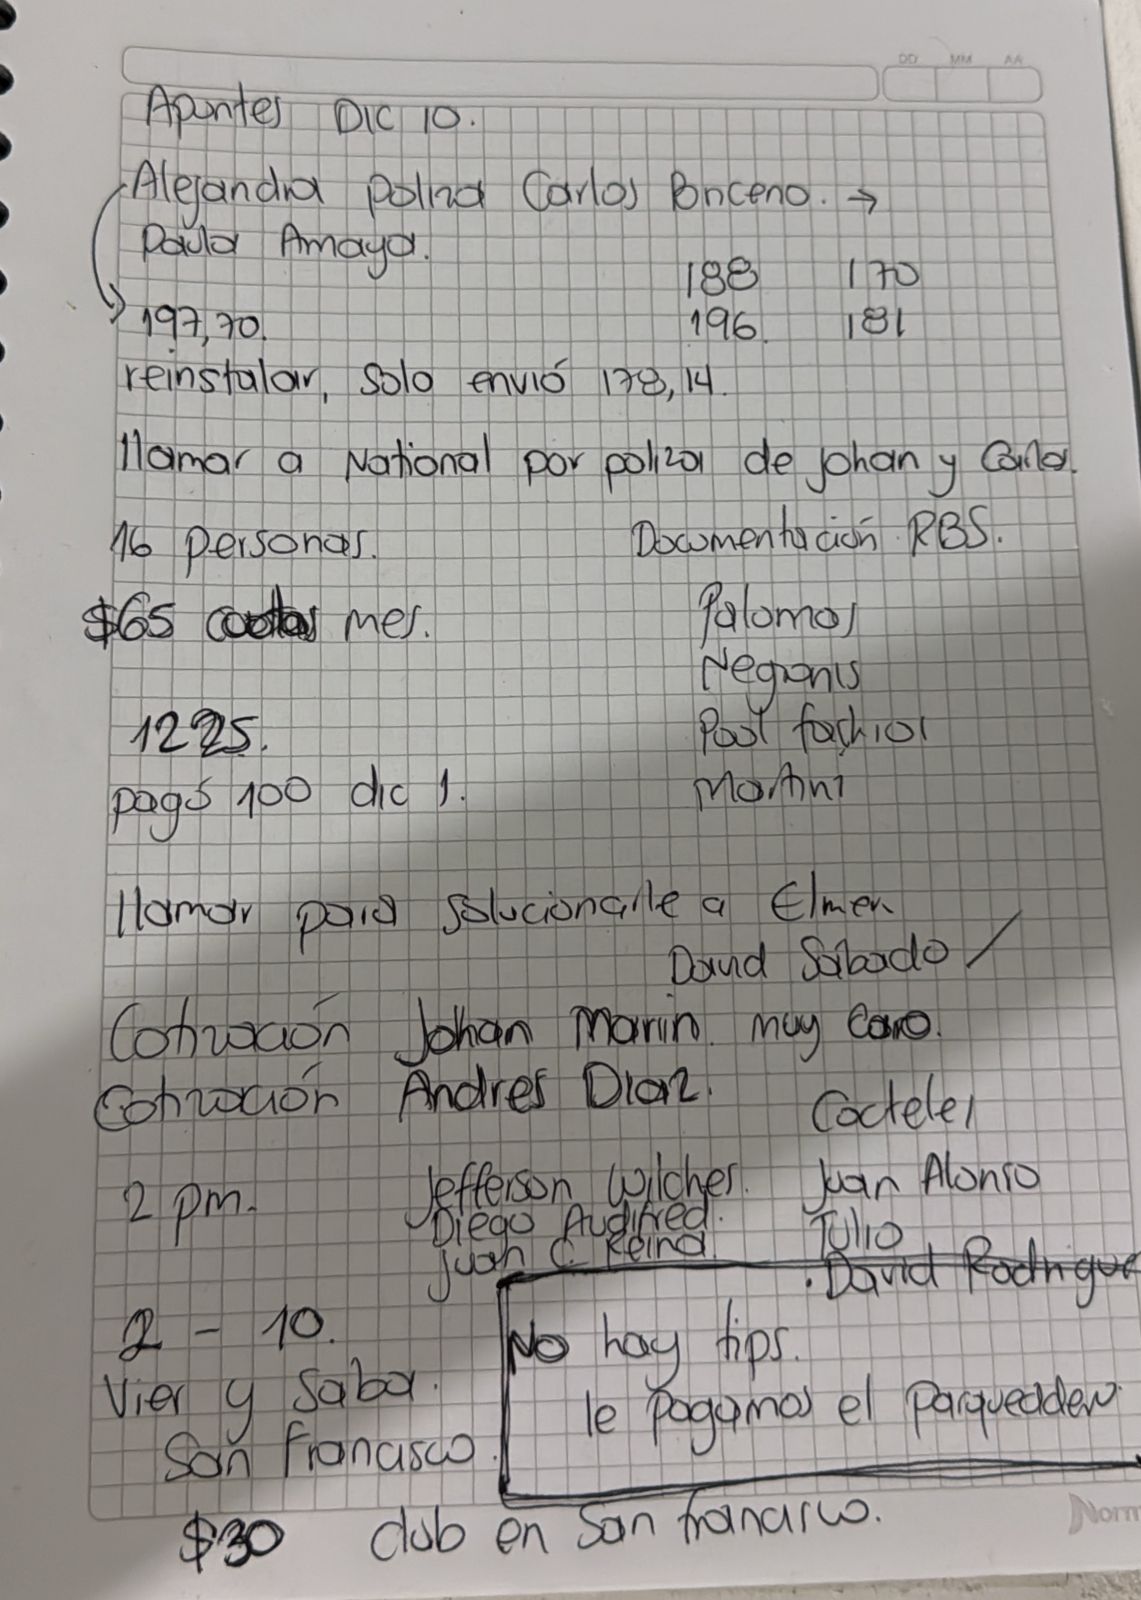 DD MM AA
Apuntes Dic 10.
Alejandra poliza Carlos Briceno. →
Paula Amaya.
188 170
197,70. 196. 181
reinstalar, solo envió 178,14.
llamar a National por poliza de Johan y Carlos.
16 personas. Documentación RBS.
$65 mes. Palomos
Negronis
1225. Pool
pagó 100 dic 1. Martini
llamar para solucionarle a Elmer
David Sábado /
Cotización Johan Marin. muy caro.
Cotización Andres Diaz.
Cocteles
2 pm. Jefferson Wilches. Juan Alonso
Diego Audifred. Tulio
Juan C. Reina . David Rodrigue
2 - 10. No hay tips.
Vier y Saba. le pagamos el parqueadero
San Francisco.
$30 club en San francisco.
Norm